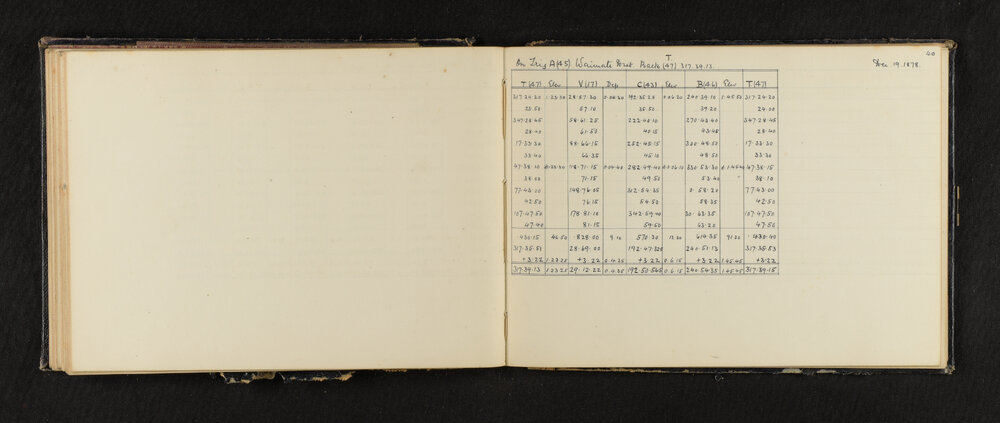 40
T
On Trig A(45) Waimate Dist. Back (47) 317.39.13. Dec 19.1878.
T(47) Elev V(17) Dep C(43) Elev B(46) Elev T(47)
317.24.20 1.23.30 28.57.30 0.04.30 192.35.20 0.06.20 240.39.10 1.45.50 317.24.20
23.50 57.10 35.50 39.20 24.00
347.28.45 58.61.25 222.40.10 270.43.40 347.28.45
28.40 61.50 40.15 43.45 28.40
17.33.30 88.66.15 252.45.15 300.48.50 17.33.30
33.40 66.35 45.10 48.50 33.30
47.38.10 118.71.15 0.04.40 282.49.40 0.06.10 330.53.30 47.38.15
38.00 71.15 49.50 53.40 38.10
77.43.00 148.76.05 312.54.35 0.58.20 77.43.00
42.50 76.15 54.50 58.35 42.50
107.47.50 178.81.10 342.59.40 30.63.35 107.47.50
47.40 81.15 59.50 63.20 47.50
430.15 46.50 828.00 9.10 570.30 12.30 614.35 91.30 430.40
317.35.51 28.69.00 192.47.32 240.51.13 317.35.53
+3.22 1.23.25 +3.22 0.4.35 +3.22 0.6.15 +3.22 1.45.45 +3.22
317.39.13 1.23.25 29.12.22 0.4.35 192.50.54 0.6.15 240.54.35 1.45.45 317.39.15